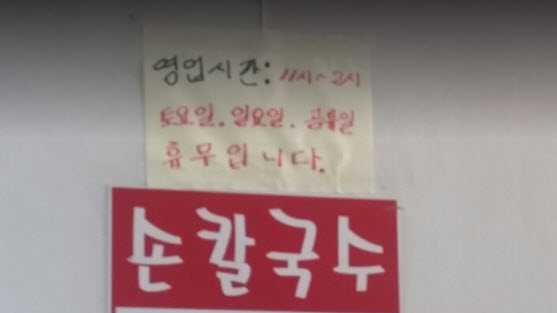 영업시간: 11시~2시
토요일. 일요일. 공휴일
휴무입니다.
손칼국수